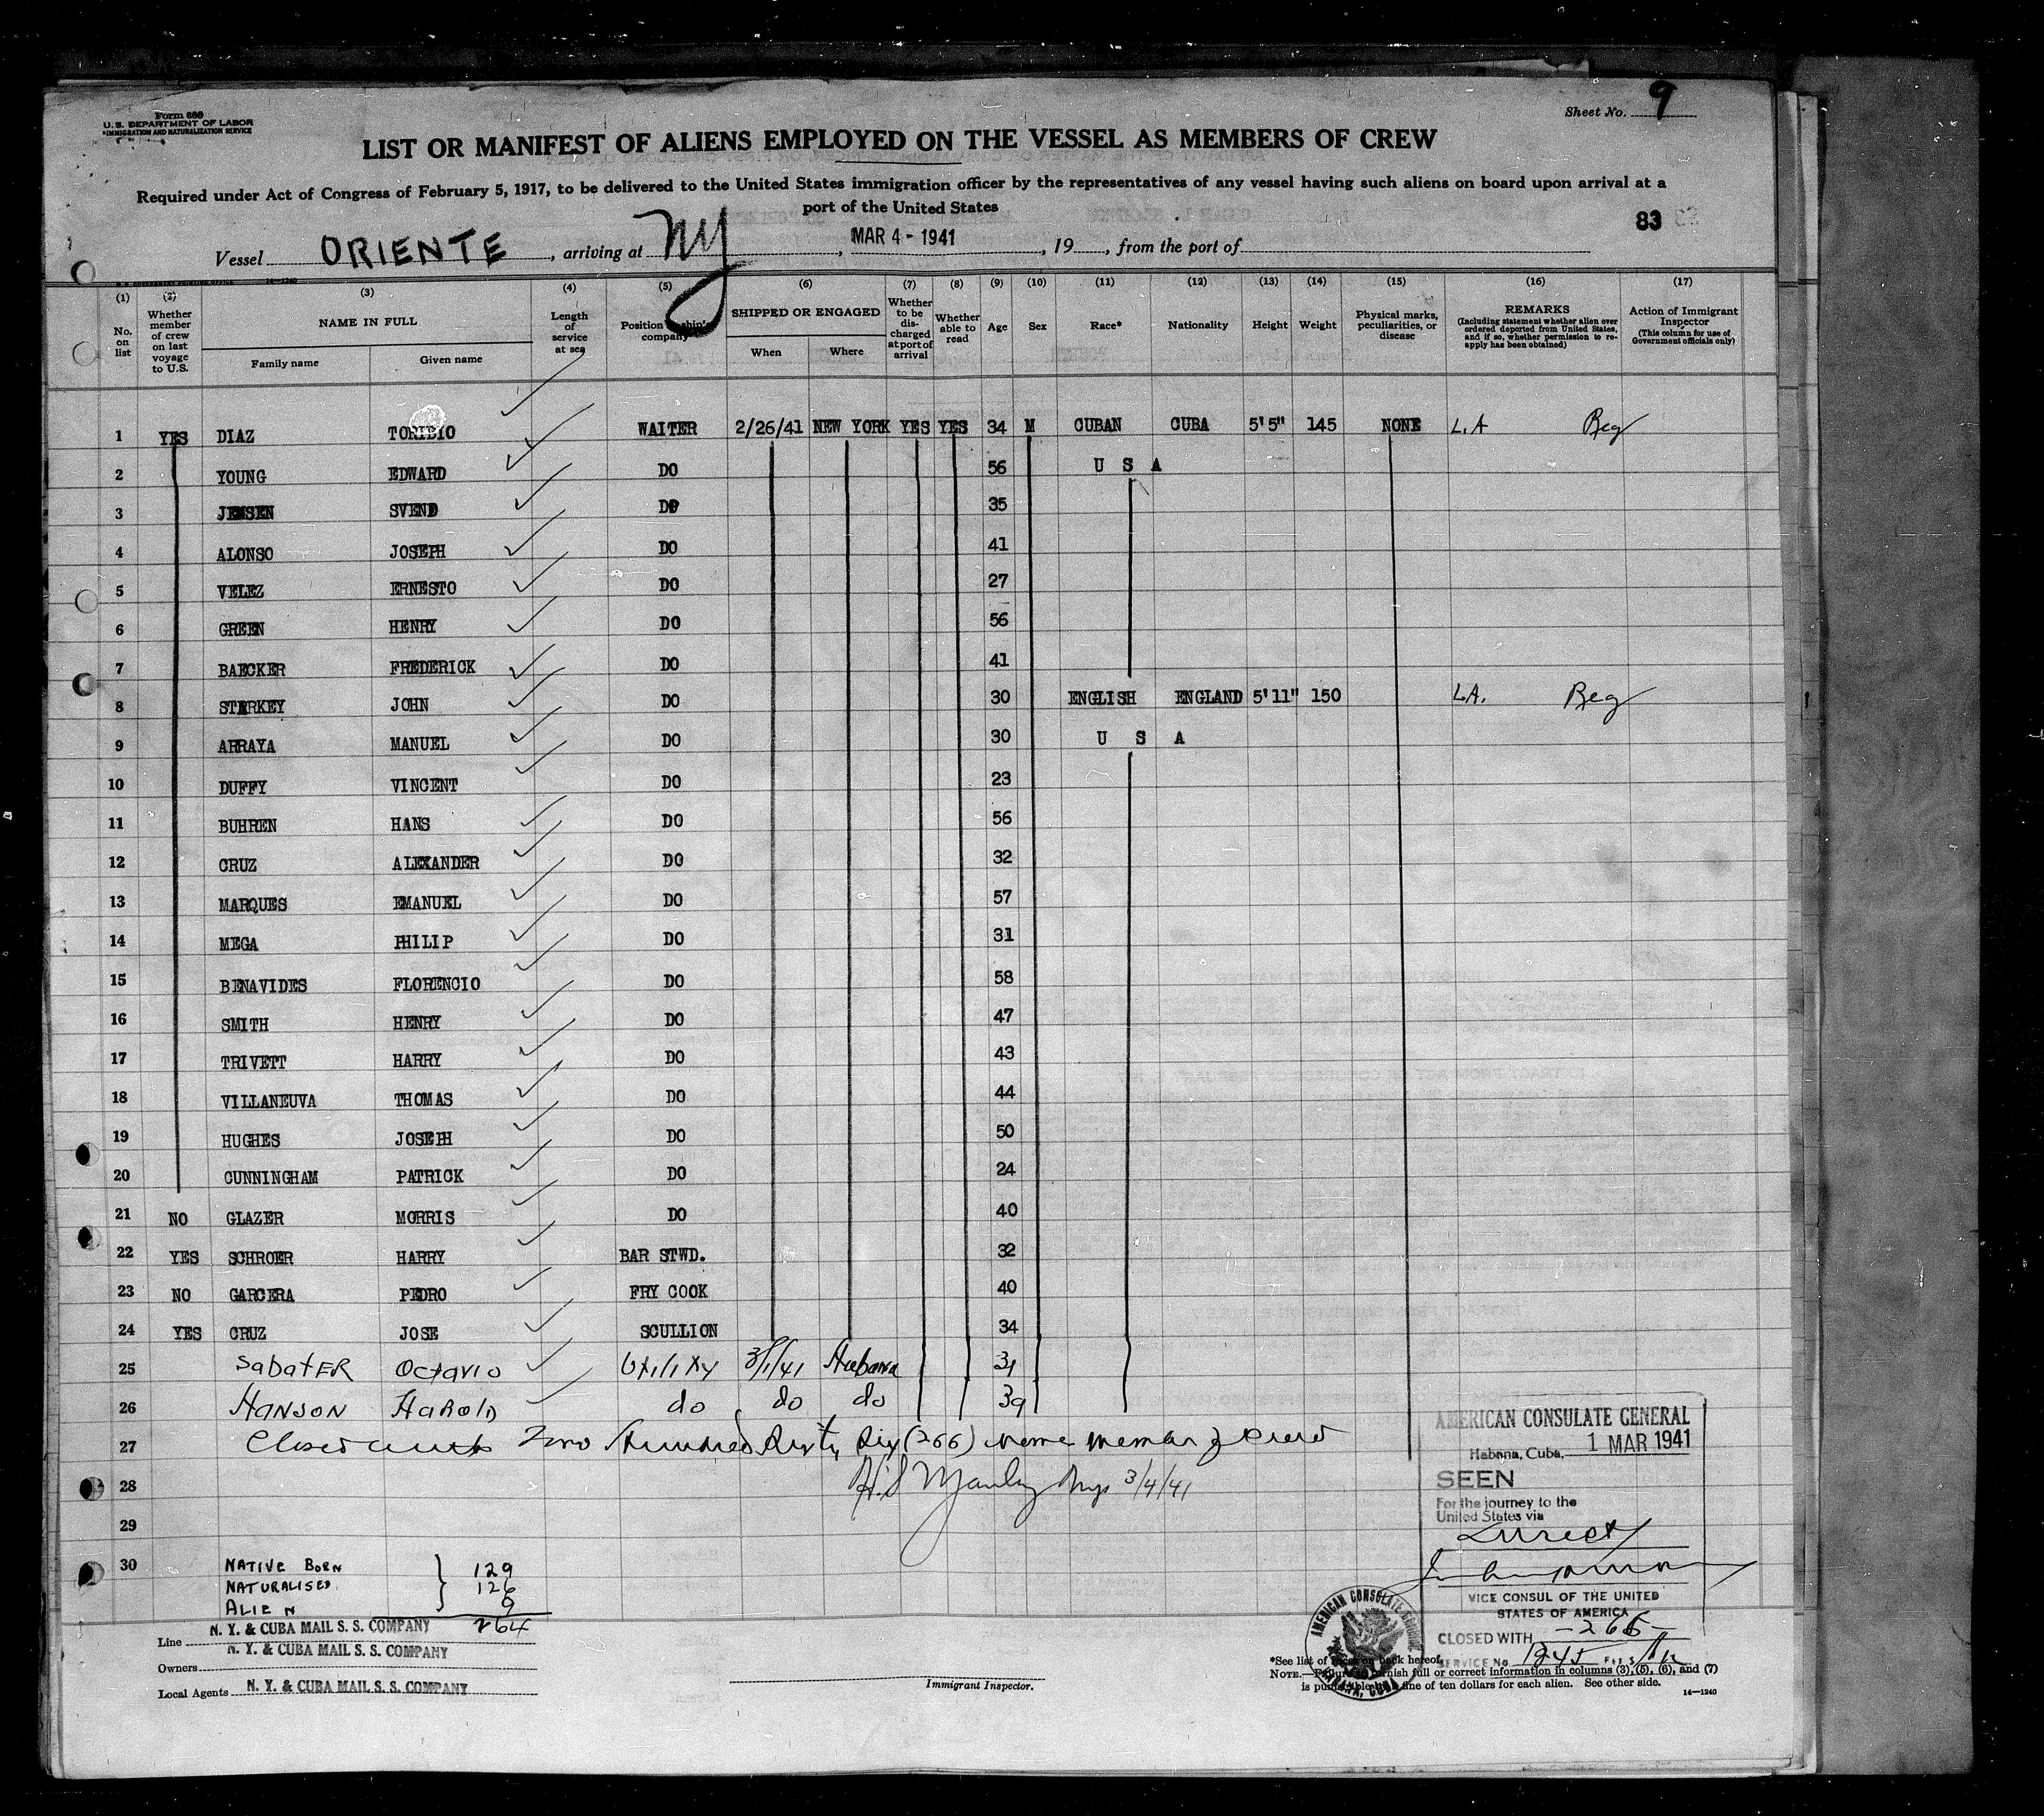 Form 680
U. S. DEPARTMENT OF LABOR
IMMIGRATION AND NATURALIZATION SERVICE
Sheet No. 9
LIST OR MANIFEST OF ALIENS EMPLOYED ON THE VESSEL AS MEMBERS OF CREW
Required under Act of Congress of February 5, 1917, to be delivered to the United States immigration officer by the representatives of any vessel having such aliens on board upon arrival at a
port of the United States
83
Vessel ORIENTE, arriving at NY, MAR 4 - 1941, 19, from the port of
14—1240
(1) (2) (3) (4) (5) (6) (7) (8) (9) (10) (11) (12) (13) (14) (15) (16) (17)
No. on list
Whether member of crew on last voyage to U.S.
NAME IN FULL
Family name
Given name
Length of service at sea
Position company
SHIPPED OR ENGAGED
When
Where
Whether to be discharged at port of arrival
Whether able to read
Age
Sex
Race*
Nationality
Height
Weight
Physical marks, peculiarities, or disease
REMARKS
(Including statement whether alien ever ordered deported from United States, and if so, whether permission to reapply has been obtained)
Action of Immigrant Inspector
(This column for use of Government officials only)
1 YES DIAZ TORIBIO WAITER 2/26/41 NEW YORK YES YES 34 M CUBAN CUBA 5'5" 145 NONE L.A Reg
2 YOUNG EDWARD DO 56 U S A
3 JENSEN SVEND DO 35
4 ALONSO JOSEPH DO 41
5 VELEZ ERNESTO DO 27
6 GREEN HENRY DO 56
7 BAECKER FREDERICK DO 41
8 STARKEY JOHN DO 30 ENGLISH ENGLAND 5'11" 150 L.A. Reg
9 ARRAYA MANUEL DO 30 U S A
10 DUFFY VINCENT DO 23
11 BUHREN HANS DO 56
12 CRUZ ALEXANDER DO 32
13 MARQUES EMANUEL DO 57
14 MEGA PHILIP DO 31
15 BENAVIDES FLORENCIO DO 58
16 SMITH HENRY DO 47
17 TRIVETT HARRY DO 43
18 VILLANEUVA THOMAS DO 44
19 HUGHES JOSEPH DO 50
20 CUNNINGHAM PATRICK DO 24
21 NO GLAZER MORRIS DO 40
22 YES SCHROER HARRY BAR STWD. 32
23 NO GARCERA PEDRO FRY COOK 40
24 YES CRUZ JOSE SCULLION 34
25 SabatER Octavio Utility 3/1/41 Habana 31
26 HANSON HAROLD do do do 39
27 Closed with Two Hundred Sixty Six (266) members of Crew
28 H.S Manley 3/4/41
29
30
NATIVE BORN 129
NATURALISED 126
ALIEN 9
264
AMERICAN CONSULATE GENERAL
Habana, Cuba, 1 MAR 1941
SEEN
For the journey to the
United States via
Direct
VICE CONSUL OF THE UNITED
STATES OF AMERICA
CLOSED WITH -266-
SERVICE No. 1245
AMERICAN CONSULATE GENERAL HABANA, CUBA
Line N. Y. & CUBA MAIL S. S. COMPANY
Owners N. Y. & CUBA MAIL S. S. COMPANY
Local Agents N. Y. & CUBA MAIL S. S. COMPANY
Immigrant Inspector.
*See list of races on back hereof.
NOTE.—Failure to furnish full or correct information in columns (3), (5), (6), and (7)
is punishable by a fine of ten dollars for each alien. See other side.
14—1240